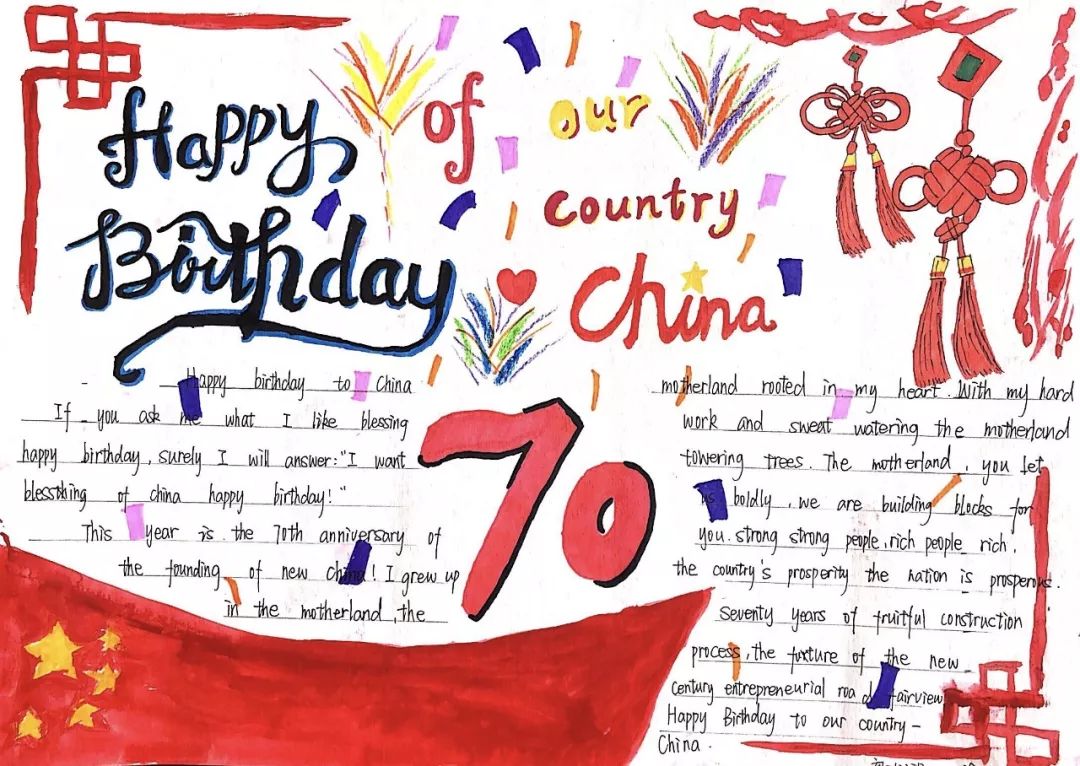 Happy
Birthday
of
our
country
China
Happy birthday to China
If you ask me what I like blessing
happy birthday, surely I will answer:"I want
blessthing of china happy birthday!"
This year is the 70th anniversary of
the founding of new china! I grew up
in the motherland, the
70
motherland rooted in my heart. With my hard
work and sweat watering the motherland
towering trees. The motherland, you let
us boldly, we are building blocks for
you. strong strong people, rich people rich.
the country's prosperity the nation is prosperous.
Seventy years of fruitful construction
process, the fuxture of the new
century entrepreneurial road fairview
Happy Birthday to our country-
China.